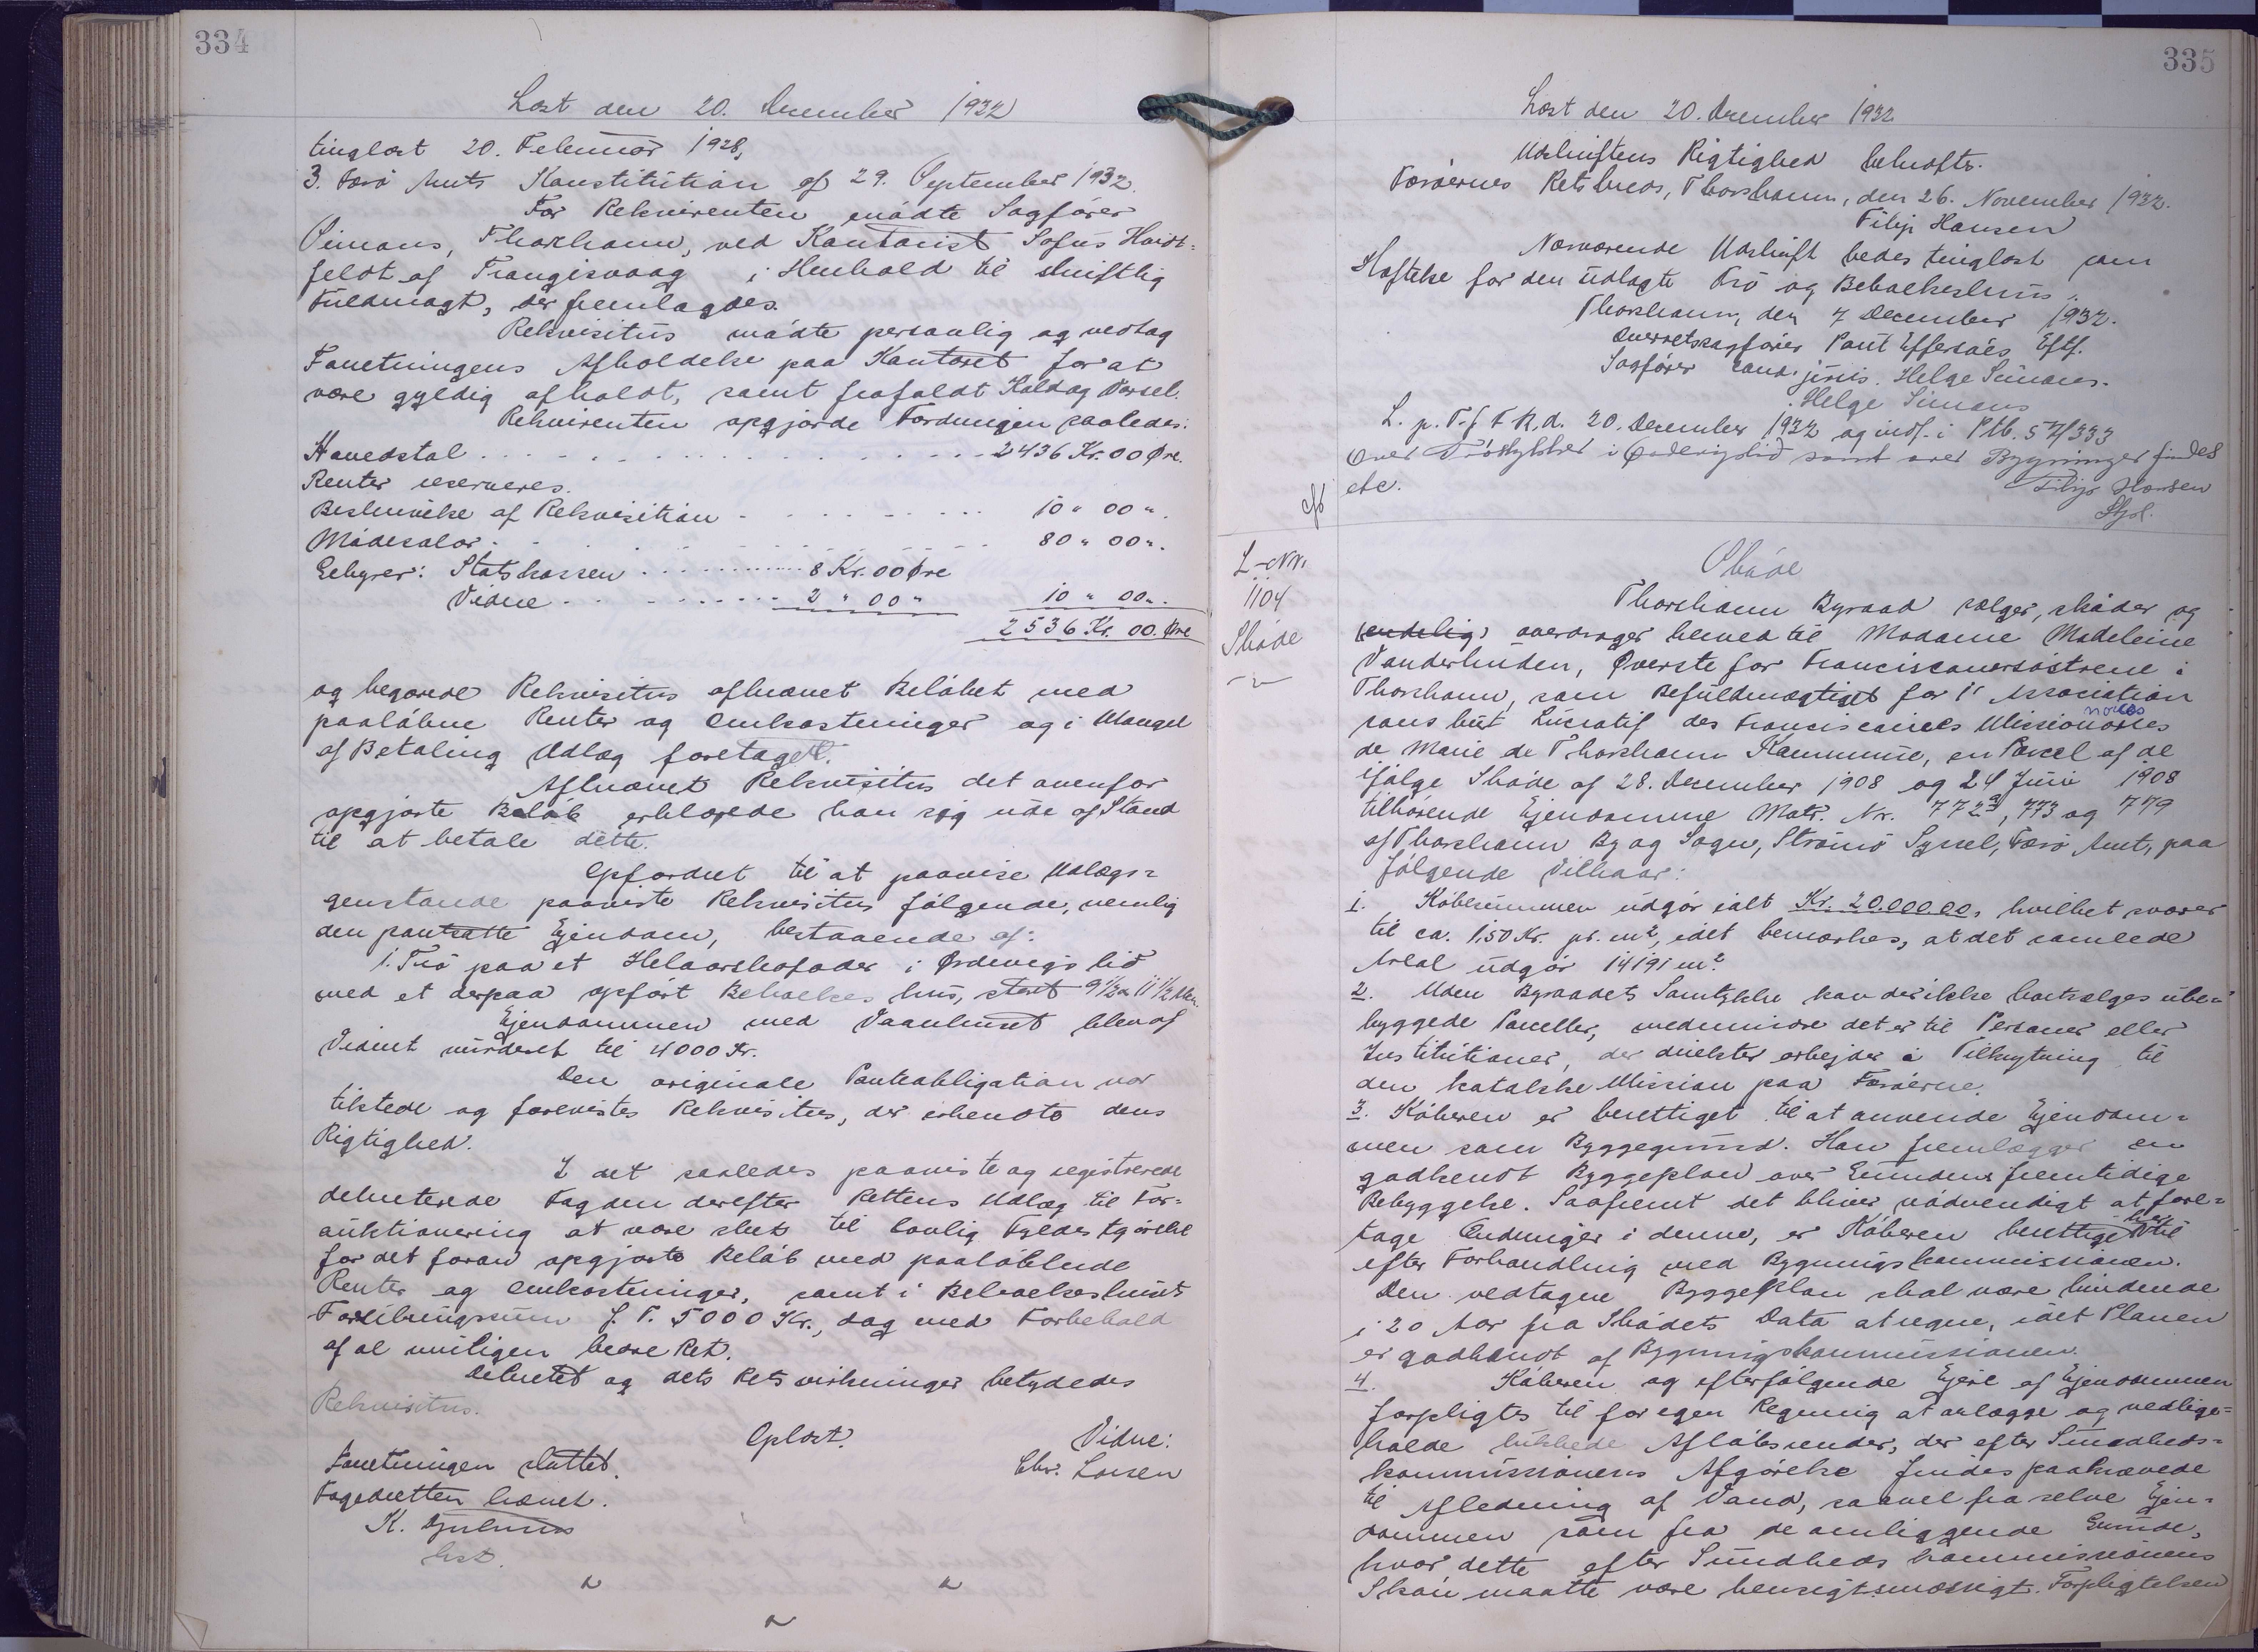 334
Læst den 20. December 1932
tinglæst 20. Februar 1928,
3. Færø Amts Konstitution af 29. September 1932.
For Rekvirenten mødte Sagfører
Simons, Thorshavn, ved Kontorist Sofus
feldt af Trangisvaag i Henhold til skriftlig
Fuldmagt, der fremlagdes.
Rekvisitus mødte personlig og vedtog
Forretningens Afholdelse paa Kontoret for at
være gyldig afholdt, samt frafaldt Kald og Varsel.
Rekvirenten opgjorde Fordringen saaledes:
Hovedstol . . . . . . . . 2436 Kr. 00 Øre.
Renter reserveres.
Beskrivelse af Rekvisition - - - - - 10 " 00 ".
Mødesalær - - - - - 80 " 00 ".
Gebyrer: Statskassen . . . . . 8 Kr. 00 Øre
Vidne . . . . . 2 " 00 " 10 " 00 ".
2536 Kr. 00. Øre
og begærede Rekvisitus afkrævet Beløbet med
paaløbne Renter og Omkostninger og i Mangel
af Betaling Udlæg foretaget.
Afkrævet Rekvisitus det ovenfor
opgjorte Beløb erklærede han sig ude af Stand
til at betale dette.
Opfordret til at paavise Udlægs=
genstande paaviste Rekvisitus følgende, nemlig
den pantsatte Ejendom, bestaaende af:
1. Trø paa et Helaarskofoder i Ørdevigs lid
med et derpaa opført Beboelses hus, stort 9 1/2 x 11 1/2 Alen.
Ejendommen med Vaanhuset blev af
Vidnet vurderet til 4000 Kr.
Den originale Panteobligation var
tilstede og forevistes Rekvisitus, der erkendte dens
Rigtighed.
I det saaledes paaviste og registrerede
dekreterede Fogden derefter Rettens Udlæg til For=
auktionering at være sket til lovlig Fyldestgørelse
for det foran opgjorte Beløb med paaløbende
Renter og Omkostninger, samt i Beboelseshusets
Forsikringssum f. T. 5000 Kr., dog med Forbehold
af al muligen bedre Ret.
Dekretet og dets Retsvirkninger betydedes
Rekvisitus.
Oplæst. Vidne:
Forretningen sluttet. Chr. Larsen
Fogedretten hævet.
K. Djurhuus
kst.
335
Læst den 20. December 1932
Udskriftens Rigtighed bekræftes.
Færøernes Retskreds, Thorshavn, den 26. November 1932.
Filip Hansen
Nærværende Udskrift bedes tinglæst som
Hæftelse for den udlagte Trø og Beboelseshus.
Thorshavn, den 7 December 1932.
Overretssagfører Poul Effersøes Eftf.
Sagfører cand. juris. Helge Simons.
Helge Simons
L. p. T. f F R. d. 20. December 1932 og indf. i Ptb. S 21/333
Over Trøstykket i Ørdevigslid samt over Bygninger findes
etc. Filip Hansen
Skjøl.
L-Nr.
1104
Skøde
Skøde
Thorshavn Byraad sælger, skøder og
(endelig) overdrager herved til Madame Madeleine
Vanderlinden, Øverste for Franciscanersøstrene i
Thorshavn, som Befuldmægtiget for l' Association
sans but Lucratif des Franciscaines Missionaires
de Marie de Thorshavn Kommune, en Parcel af de
ifølge Skøde af 28. December 1908 og 24 Juni 1908
tilhørende Ejendomme Matr. Nr. 772a, 773 og 779
af Thorshavn By og Sogn, Strømø Syssel, Færø Amt, paa
følgende Vilkaar:
1. Købesummen udgør ialt Kr. 20.000.00, hvilket svarer
til ca. 1,50 Kr. pr. m², idet bemærkes, at det samlede
Areal udgør 14191 m².
2. Uden Byraadets Samtykke kan der ikke bortsælges ube=
byggede Parceller, medmindre det er til Personer eller
Institutioner, der direkter arbejder i Tilknytning til
den katolske Mission paa Færøerne.
3. Køberen er berettiget til at anvende Ejendom=
men som Byggegrund. Han fremlægger en
godkendt Byggeplan over Grundens fremtidige
Bebyggelse. Saafremt det bliver nødvendigt at fore=
tage Ændringer i denne, er Køberen berettiget hertil
efter Forhandling med Bygningskommissionen.
Den vedtagne Byggeplan skal være bindende
i 20 Aar fra Skødets Dato at regne, idet Planen
er godkendt af Bygningskommissionen.
4. Køberen og efterfølgende Ejere af Ejendommen
forpligtes til for egen Regning at anlægge og vedlige=
holde lukkede Afløbsrender, der efter Sundheds=
kommissionens Afgørelse findes paakrævede
til Afledning af Vand, saavel fra selve Ejen=
dommen som fra de omliggende Grunde,
hvor dette efter Sundheds kommissionens
Skøn maatte være hensigtsmæssigt. Forpligtelsen